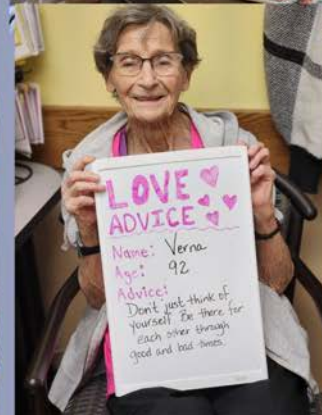 LOVE
ADVICE
Name: Verna
Age: 92
Advice:
Don't just think of
yourself. Be there for
each other through
good and bad times.